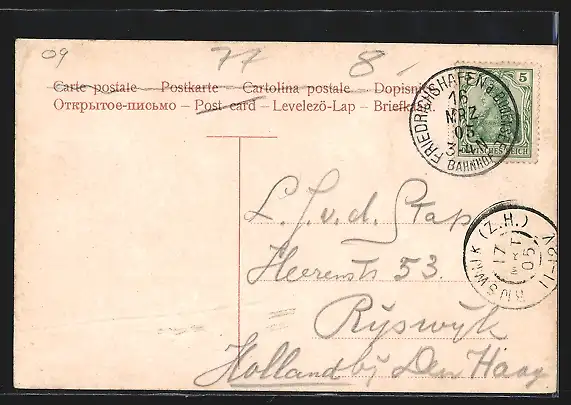 09 77 8
Carte postale – Postkarte – Cartolina postale – Dopisnice
Открытое-письмо – Post card – Levelező-Lap – Briefkaart
5
DEUTSCHES REICH
FRIEDRICHSHAFEN a. BODENSEE
16
MRZ
05
3-4N
BAHNHOF
RIJSWIJK (Z.H.)
17
05
11-12V
L. J. v. d. Stap
Heerenstr 53.
Ryswyk
Holland by Den Haag